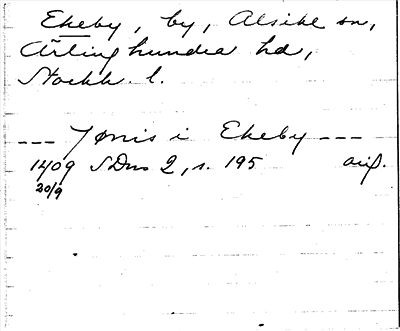 Ekeby, by, Alsike sn,
Ärlinghundra hd,
Stockh. l.
--- Jønis i Ekeby ---
1409 SDns 2, s. 195 avs.
20/9